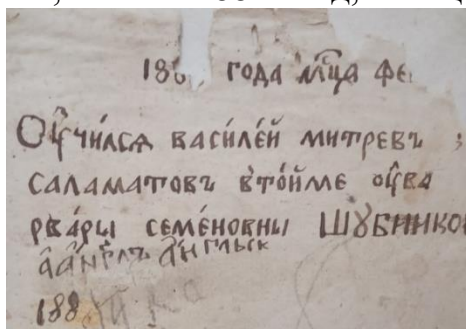 188 года мц҃а фе
Оу҆чи́лсѧ васи́лей митревъ
саламатовъ вто́йме оу҆ва
рва́ры семе́новны Шꙋбинко
а҆а҆нг҃лъ а҆́нгльск
188